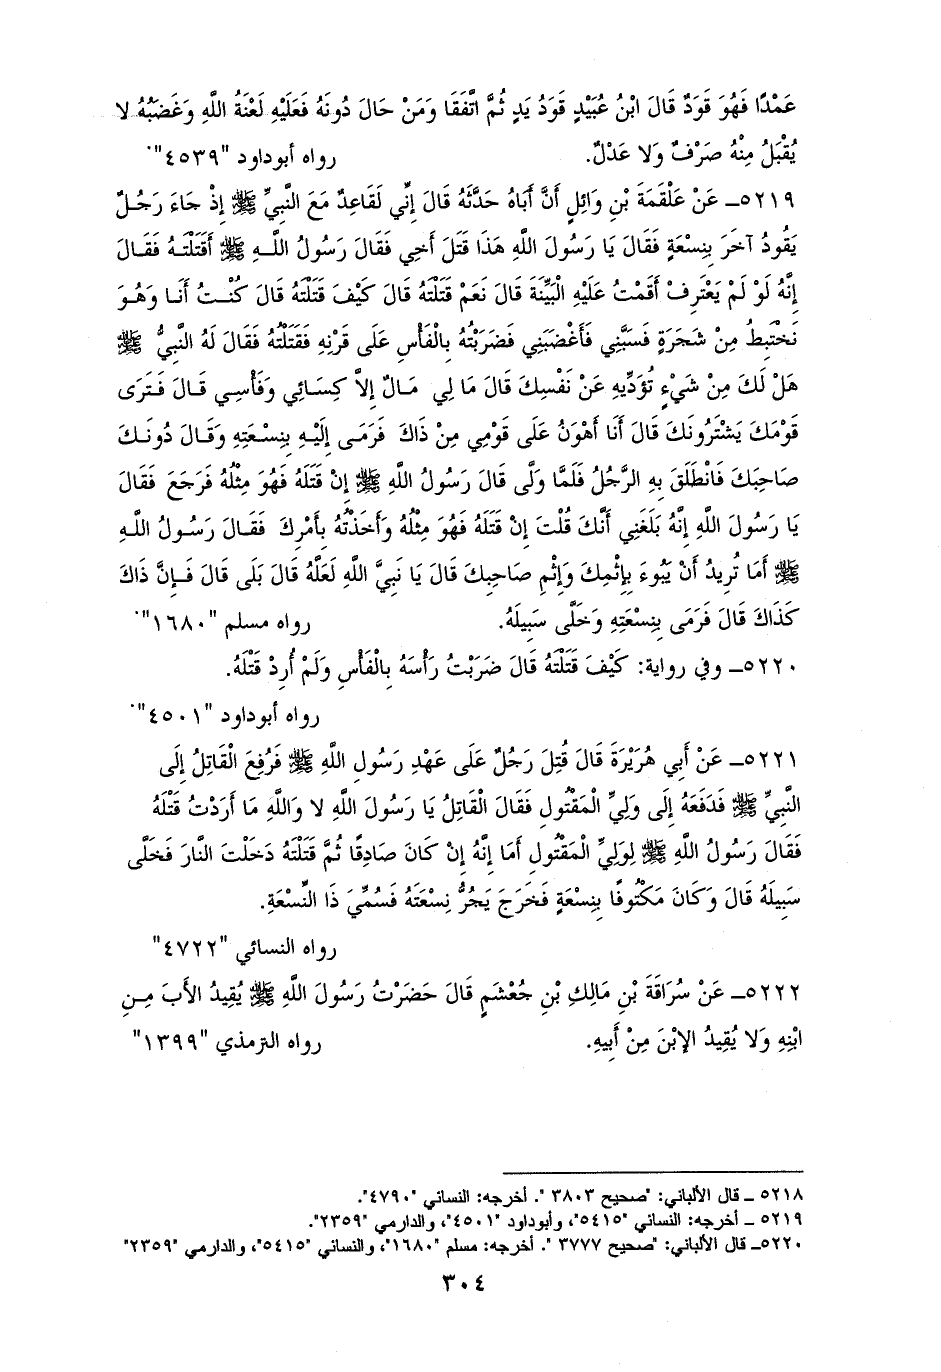 عَمْدًا فَهُوَ قَوَدٌ قَالَ ابْنُ عُبَيْدٍ قَوَدُ يَدٍ ثُمَّ اتَّفَقَا وَمَنْ حَالَ دُونَهُ فَعَلَيْهِ لَعْنَةُ اللَّهِ وَغَضَبُهُ لا
يُقْبَلُ مِنْهُ صَرْفٌ وَلا عَدْلٌ. رواه أبوداود "٤٥٣٩".
٥٢١٩ـ عَنْ عَلْقَمَةَ بْنِ وَائِلٍ أَنَّ أَبَاهُ حَدَّثَهُ قَالَ إِنِّي لَقَاعِدٌ مَعَ النَّبِيِّ ﷺ إِذْ جَاءَ رَجُلٌ
يَقُودُ آخَرَ بِنِسْعَةٍ فَقَالَ يَا رَسُولَ اللَّهِ هَذَا قَتَلَ أَخِي فَقَالَ رَسُولُ اللَّهِ ﷺ أَقَتَلْتَهُ فَقَالَ
إِنَّهُ لَوْ لَمْ يَعْتَرِفْ أَقَمْتُ عَلَيْهِ الْبَيِّنَةَ قَالَ نَعَمْ قَتَلْتَهُ قَالَ كَيْفَ قَتَلْتَهُ قَالَ كُنْتُ أَنَا وَهُوَ
نَخْتَبِطُ مِنْ شَجَرَةٍ فَسَبَّنِي فَأَغْضَبَنِي فَضَرَبْتُهُ بِالْفَأْسِ عَلَى قَرْنِهِ فَقَتَلْتُهُ فَقَالَ لَهُ النَّبِيُّ ﷺ
هَلْ لَكَ مِنْ شَيْءٍ تُؤَدِّيهِ عَنْ نَفْسِكَ قَالَ مَا لِي مَالٌ إِلاَّ كِسَائِي وَفَأْسِي قَالَ فَتَرَى
قَوْمَكَ يَشْتَرُونَكَ قَالَ أَنَا أَهْوَنُ عَلَى قَوْمِي مِنْ ذَاكَ فَرَمَى إِلَيْهِ بِنِسْعَتِهِ وَقَالَ دُونَكَ
صَاحِبَكَ فَانْطَلَقَ بِهِ الرَّجُلُ فَلَمَّا وَلَّى قَالَ رَسُولُ اللَّهِ ﷺ إِنْ قَتَلَهُ فَهُوَ مِثْلُهُ فَرَجَعَ فَقَالَ
يَا رَسُولَ اللَّهِ إِنَّهُ بَلَغَنِي أَنَّكَ قُلْتَ إِنْ قَتَلَهُ فَهُوَ مِثْلُهُ وَأَخَذْتُهُ بِأَمْرِكَ فَقَالَ رَسُولُ اللَّهِ
ﷺ أَمَا تُرِيدُ أَنْ يَبُوءَ بِإِثْمِكَ وَإِثْمِ صَاحِبِكَ قَالَ يَا نَبِيَّ اللَّهِ لَعَلَّهُ قَالَ بَلَى قَالَ فَإِنَّ ذَاكَ
كَذَاكَ قَالَ فَرَمَى بِنِسْعَتِهِ وَخَلَّى سَبِيلَهُ. رواه مسلم "١٦٨٠".
٥٢٢٠ـ وفي رواية: كَيْفَ قَتَلْتَهُ قَالَ ضَرَبْتُ رَأْسَهُ بِالْفَأْسِ وَلَمْ أُرِدْ قَتْلَهُ.
رواه أبوداود "٤٥٠١".
٥٢٢١ـ عَنْ أَبِي هُرَيْرَةَ قَالَ قُتِلَ رَجُلٌ عَلَى عَهْدِ رَسُولِ اللَّهِ ﷺ فَرُفِعَ الْقَاتِلُ إِلَى
النَّبِيِّ ﷺ فَدَفَعَهُ إِلَى وَلِيِّ الْمَقْتُولِ فَقَالَ الْقَاتِلُ يَا رَسُولَ اللَّهِ لا وَاللَّهِ مَا أَرَدْتُ قَتْلَهُ
فَقَالَ رَسُولُ اللَّهِ ﷺ لِوَلِيِّ الْمَقْتُولِ أَمَا إِنَّهُ إِنْ كَانَ صَادِقًا ثُمَّ قَتَلْتَهُ دَخَلْتَ النَّارَ فَخَلَّى
سَبِيلَهُ قَالَ وَكَانَ مَكْتُوفًا بِنِسْعَةٍ فَخَرَجَ يَجُرُّ نِسْعَتَهُ فَسُمِّيَ ذَا النِّسْعَةِ.
رواه النسائي "٤٧٢٢"
٥٢٢٢ـ عَنْ سُرَاقَةَ بْنِ مَالِكِ بْنِ جُعْشَمٍ قَالَ حَضَرْتُ رَسُولَ اللَّهِ ﷺ يُقِيدُ الأَبَ مِنِ
ابْنِهِ وَلا يُقِيدُ الإبْنَ مِنْ أَبِيهِ. رواه الترمذي "١٣٩٩"
٥٢١٨ ـ قال الألباني: "صحيح ٣٨٠٣ ". أخرجه: النسائي "٤٧٩٠".
٥٢١٩ ـ أخرجه: النسائي "٥٤١٥"، وأبوداود "٤٥٠١"، والدارمي "٢٣٥٩".
٥٢٢٠ـ قال الألباني: "صحيح ٣٧٧٧ ". أخرجه: مسلم "١٦٨٠"، والنسائي "٥٤١٥"، والدارمي "٢٣٥٩"
٣٠٤